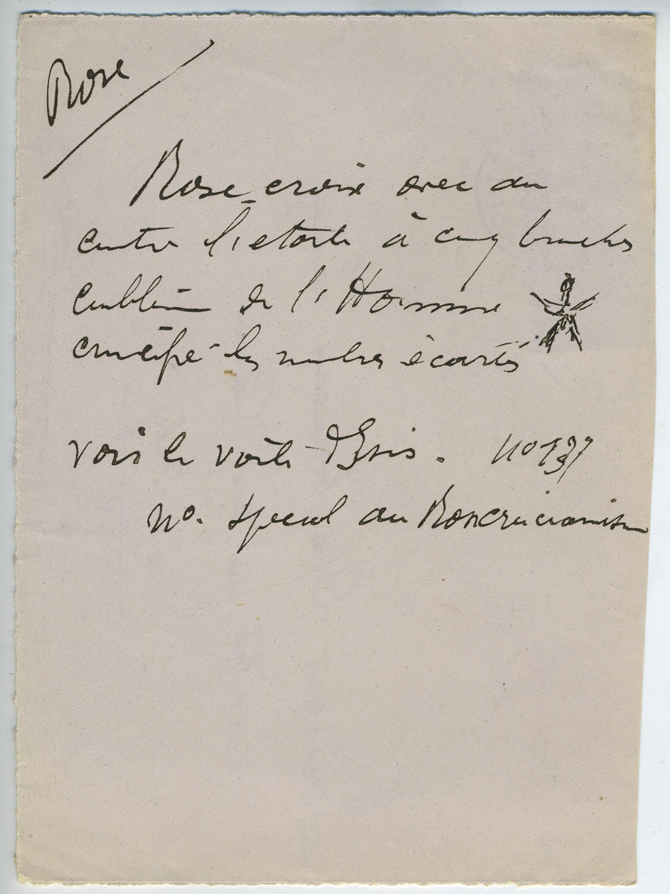 Rose
Rose croix avec au
centre l'etoile à cinq branches
emblème de l'Homme
crucifié les membres écartés
voir le voile d'Isis. no 137
No. special au Rosicrucianisme